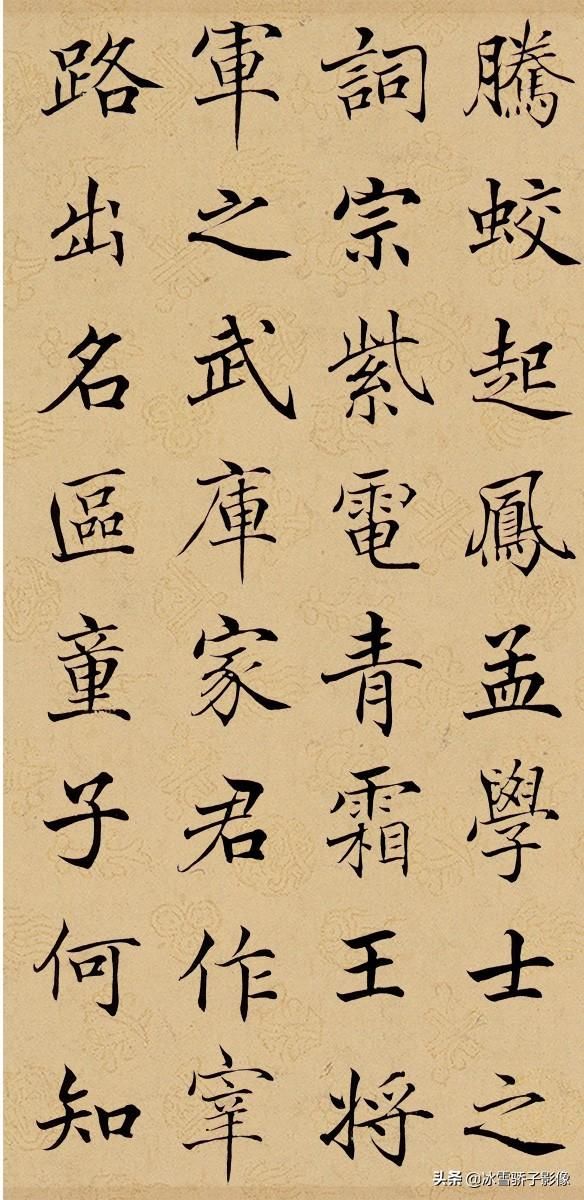 騰蛟起鳳孟學士之
詞宗紫電青霜王將
軍之武庫家君作宰
路出名區童子何知
头条 @冰雪骄子影像